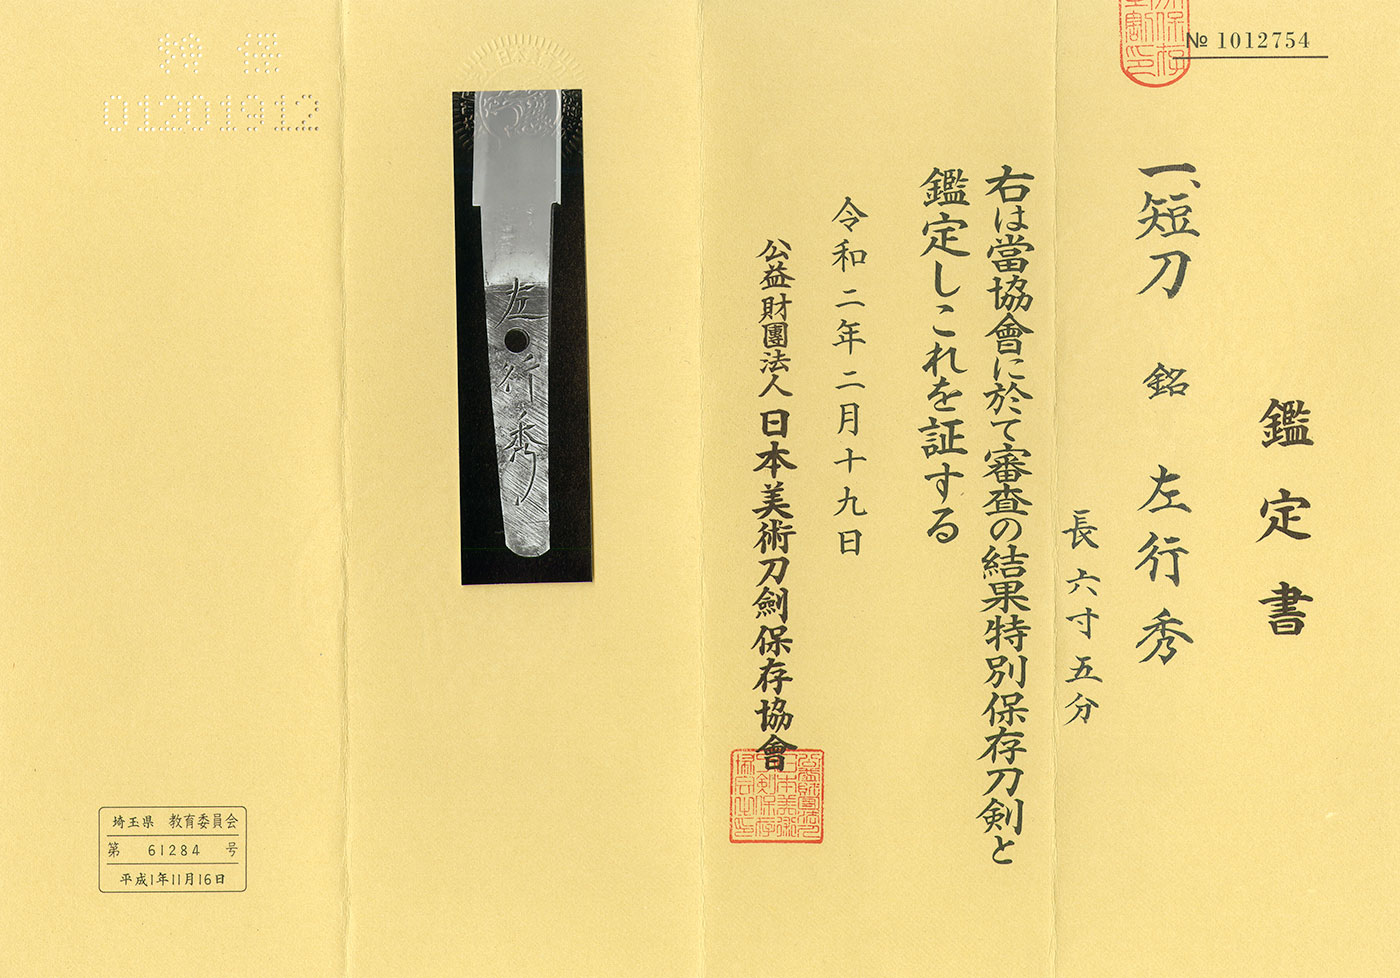 № 1012754
鑑定書
一、短刀 銘 左行秀
長六寸五分
右は當協會に於て審査の結果特別保存刀剣と
鑑定しこれを証する
令和二年二月十九日
公益財團法人 日本美術刀劍保存協會
左行秀
01201912
埼玉県 教育委員会
第 61284 号
平成1年11月16日